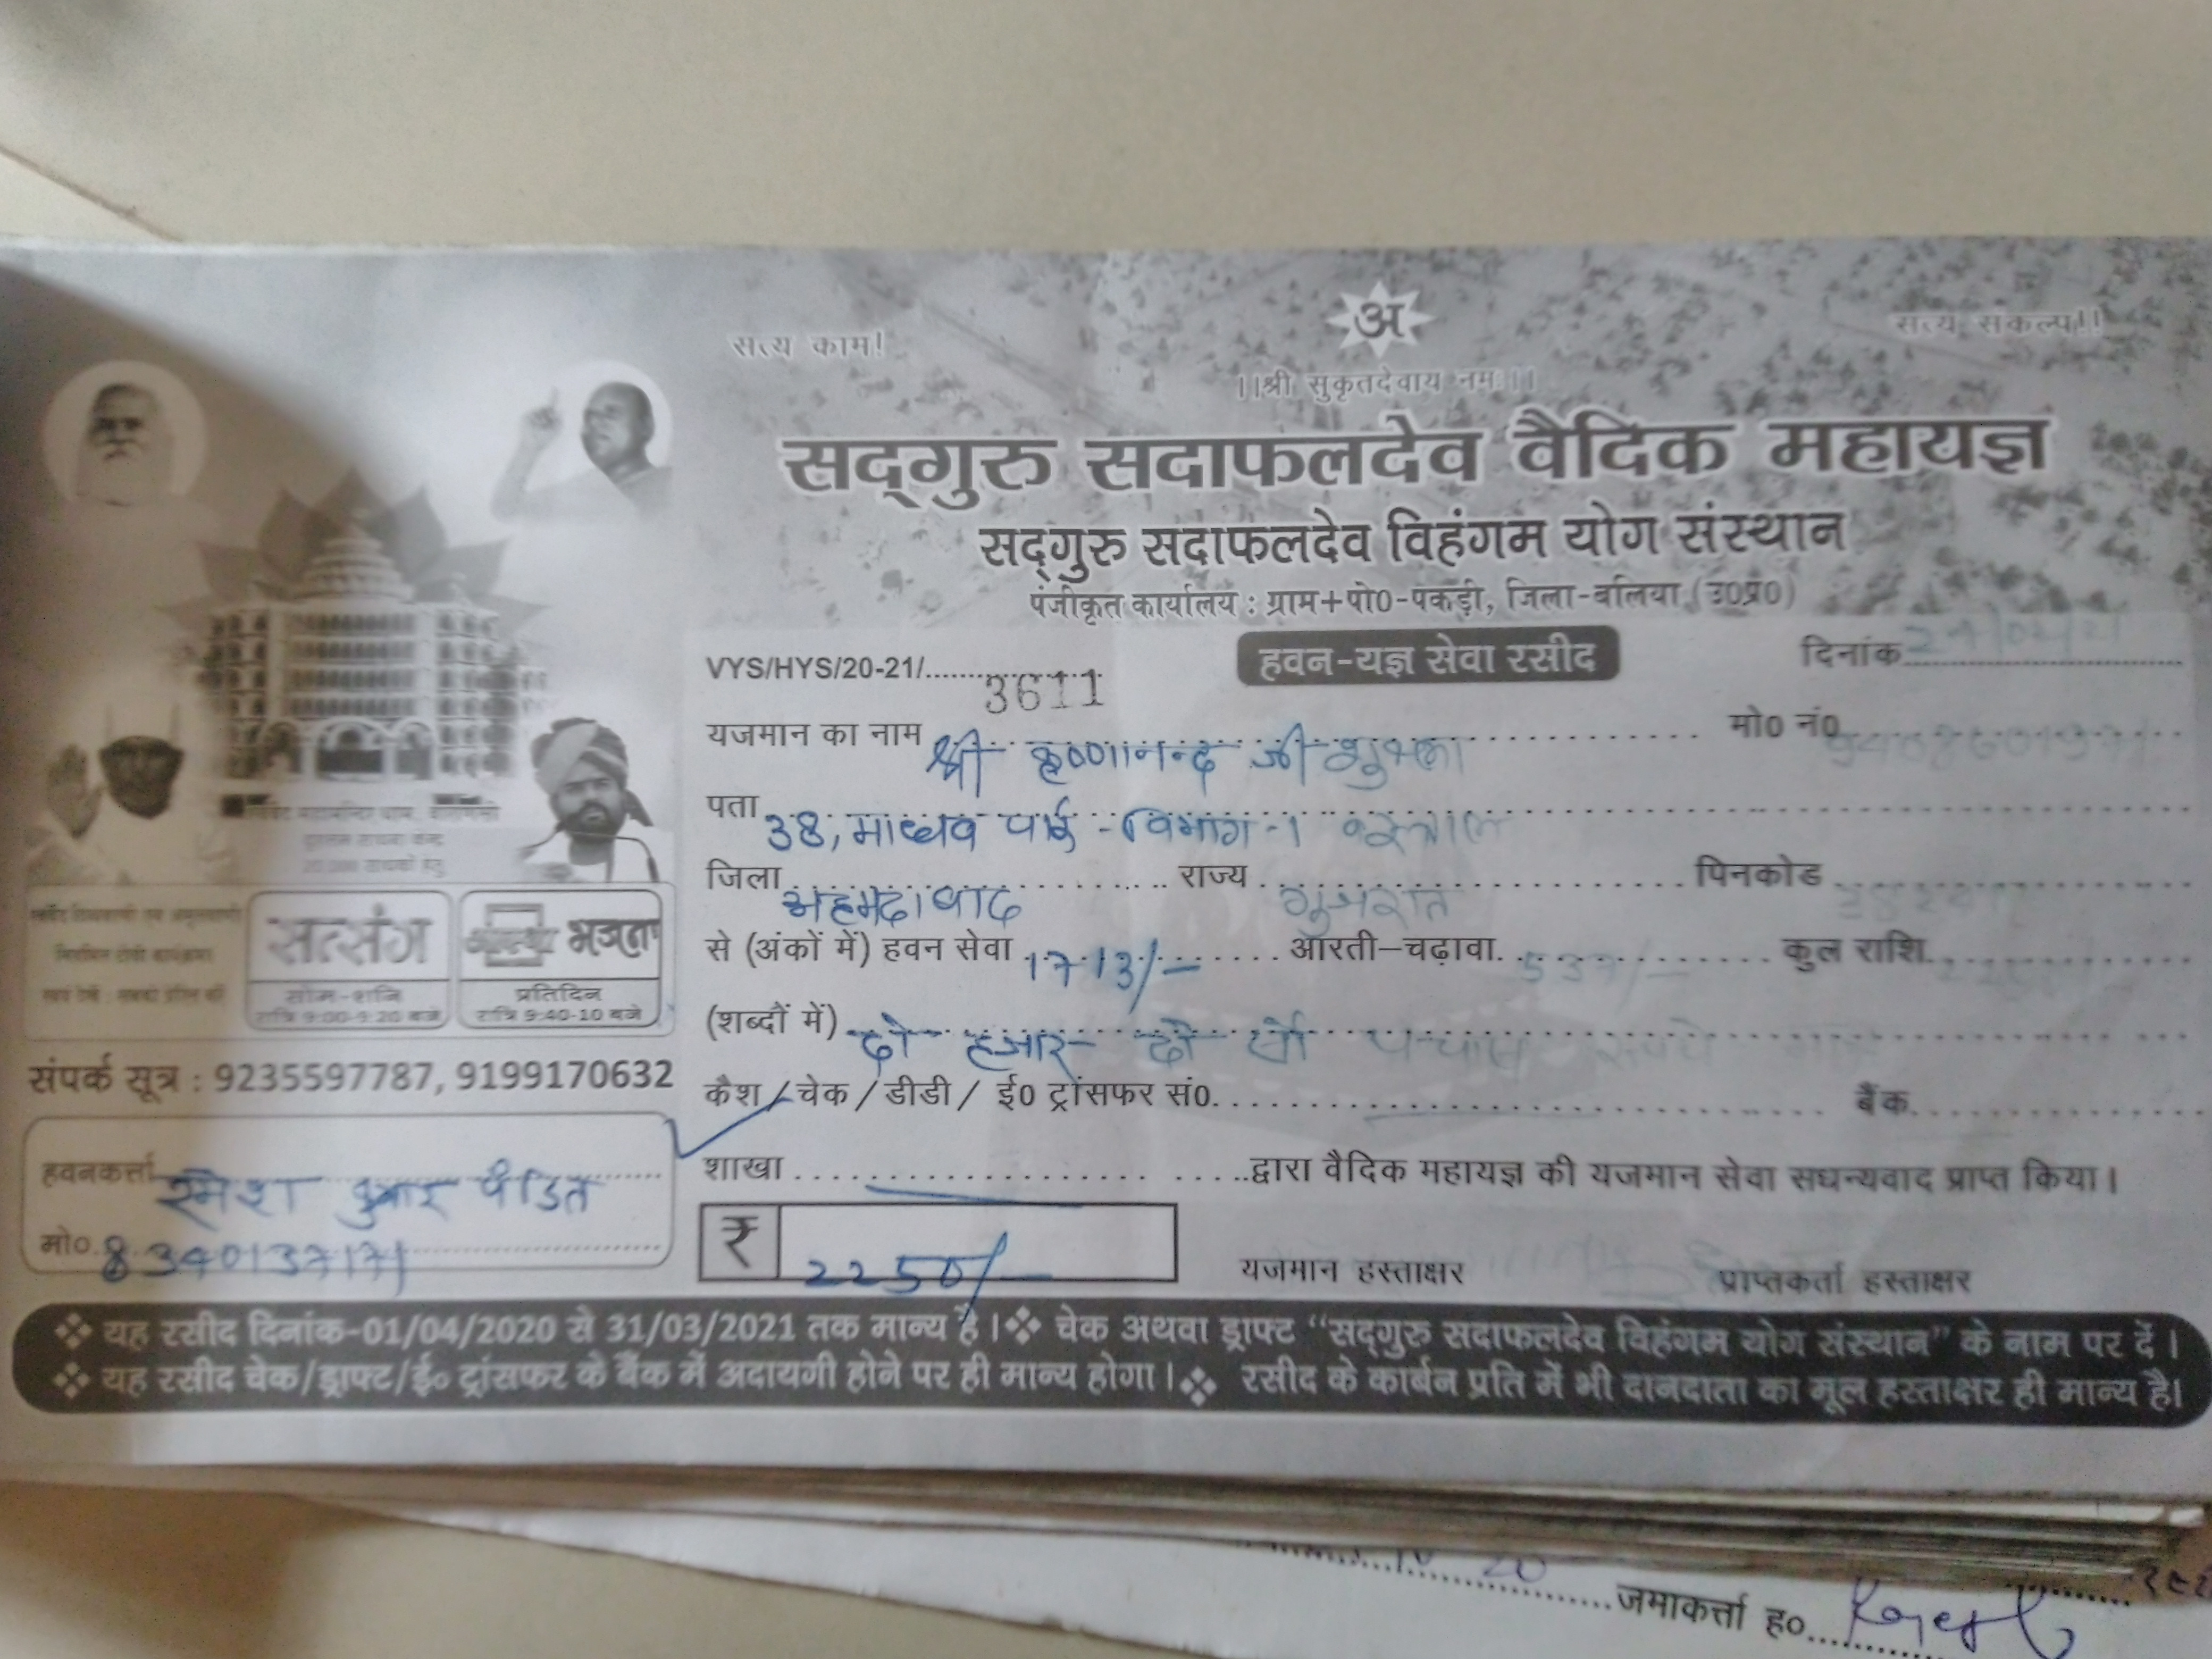 सत्य काम!
अ
सत्य संकल्प!!
।।श्री सुकृतदेवाय नमः।।
सद्‌गुरु सदाफलदेव वैदिक महायज्ञ
सद्‌गुरु सदाफलदेव विहंगम योग संस्थान
पंजीकृत कार्यालय : ग्राम+पो0-पकड़ी, जिला-बलिया (उ0प्र0)
VYS/HYS/20-21/ 3611 हवन-यज्ञ सेवा रसीद दिनांक
यजमान का नाम श्री कृष्णानन्द जी शुक्ला मो0 नं0
पता 38, माधव पार्क - विभाग-1 वस्त्राल
जिला अहमदाबाद राज्य गुजरात पिनकोड
से (अंकों में) हवन सेवा 1713/- आरती-चढ़ावा 537/- कुल राशि
(शब्दों में) दो हजार दो सौ पचास रूपये मात्र
कैश / चेक / डीडी / ई0 ट्रांसफर सं0 बैंक
शाखा द्वारा वैदिक महायज्ञ की यजमान सेवा सधन्यवाद प्राप्त किया।
₹ 2250/- यजमान हस्ताक्षर प्राप्तकर्ता हस्ताक्षर
सत्संग
सोम-शनि
रात्रि 9:00-9:20 बजे
आस्था भजन
प्रतिदिन
रात्रि 9:40-10 बजे
संपर्क सूत्र : 9235597787, 9199170632
हवनकर्त्ता रमेश कुमार पंडित
मो० 8340137171
❖ यह रसीद दिनांक-01/04/2020 से 31/03/2021 तक मान्य है।❖ चेक अथवा ड्राफ्ट “सद्‌गुरु सदाफलदेव विहंगम योग संस्थान” के नाम पर दें।
❖ यह रसीद चेक/ड्राफ्ट/ई० ट्रांसफर के बैंक में अदायगी होने पर ही मान्य होगा।❖ रसीद के कार्बन प्रति में भी दानदाता का मूल हस्ताक्षर ही मान्य है।
जमाकर्त्ता ह०